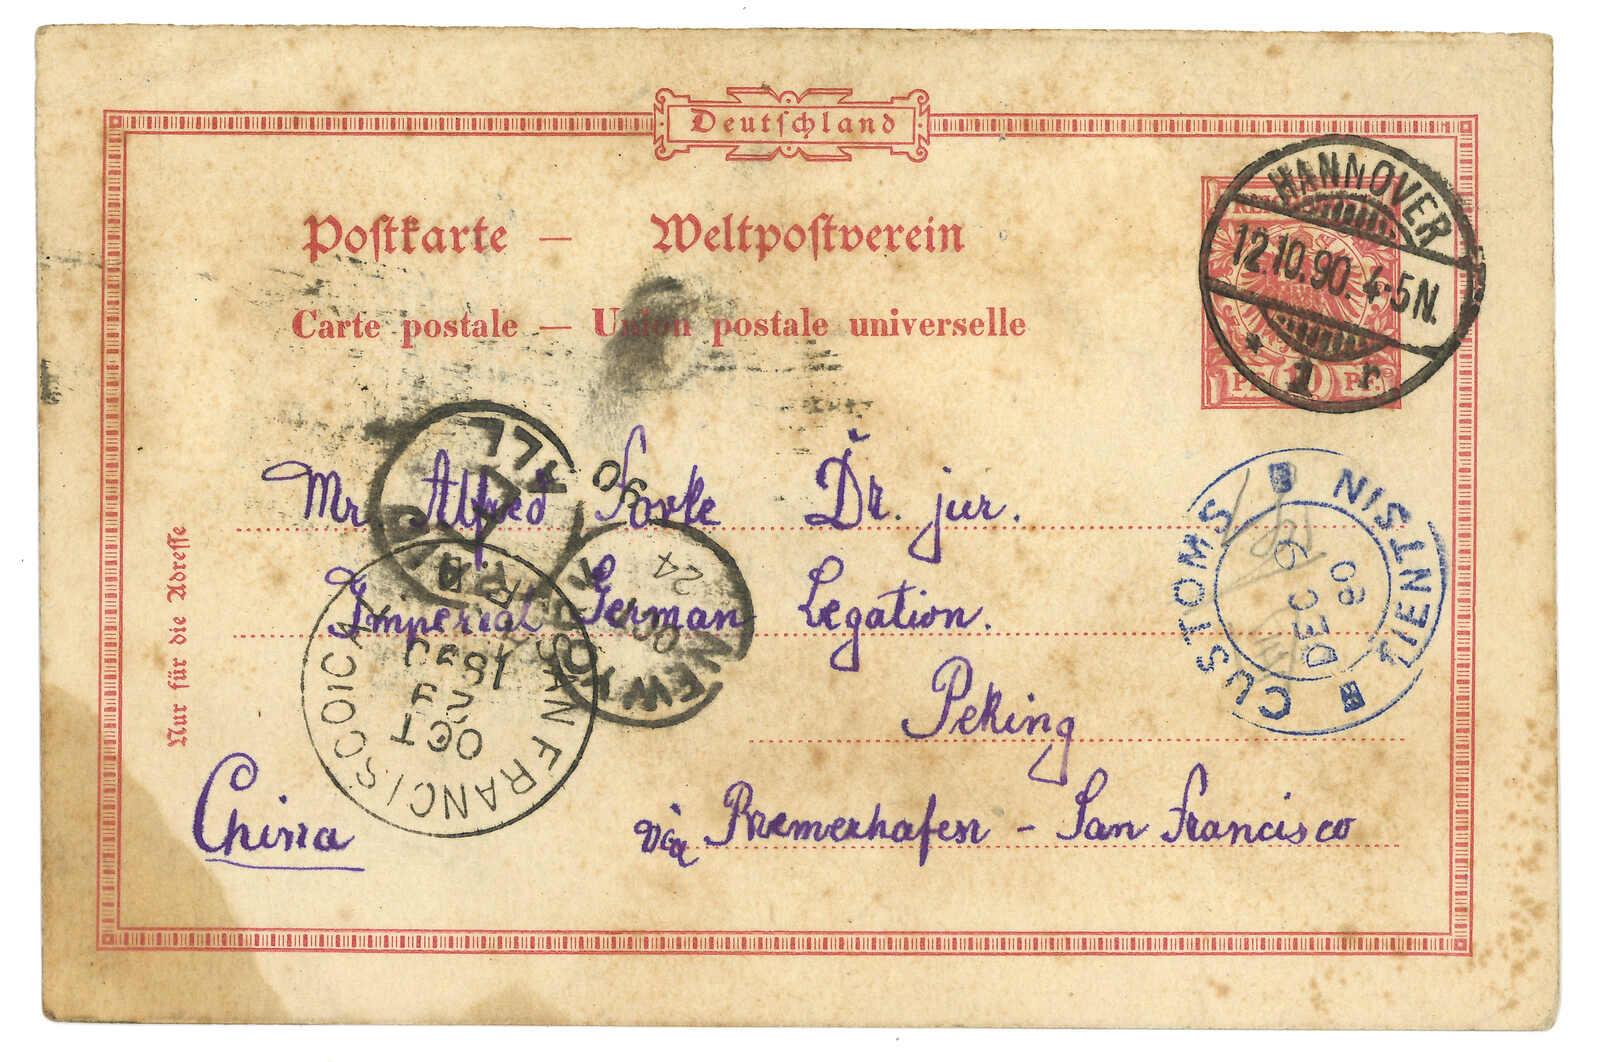 Deutschland
Postkarte — Weltpostverein
Carte postale — Union postale universelle
HANNOVER
12.10.90. 4-5N.
* 1 r
10 PF.
Mr. Alfred Forke Dr. jur.
Imperial German Legation.
Peking
China
via Bremerhafen - San Francisco
Nur für die Adresse
PAID
ALL
NEW YORK
OCT
24
90
SAN FRANCISCO, CAL
OCT
29
1890
CUSTOMS TIENTSIN
DEC 9
90